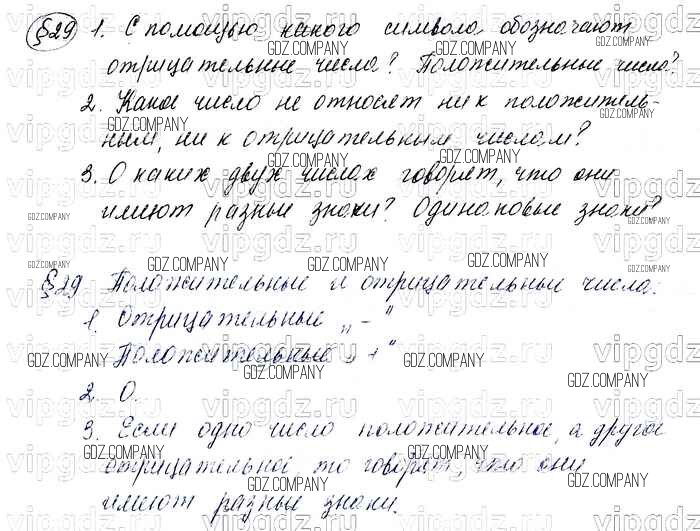 §29 1. С помощью какого символа обозначают
отрицательные числа? Положительные числа?
2. Какое число не относят ни к положитель-
ным, ни к отрицательным числам?
3. О каких двух числах говорят, что они
имеют разные знаки? Одинаковые знаки?
§29 Положительные и отрицательные числа.
1. Отрицательный „-"
Положительный „+"
2. 0.
3. Если одно число положительное, а другое
отрицательное, то говорят, что они
имеют разные знаки.